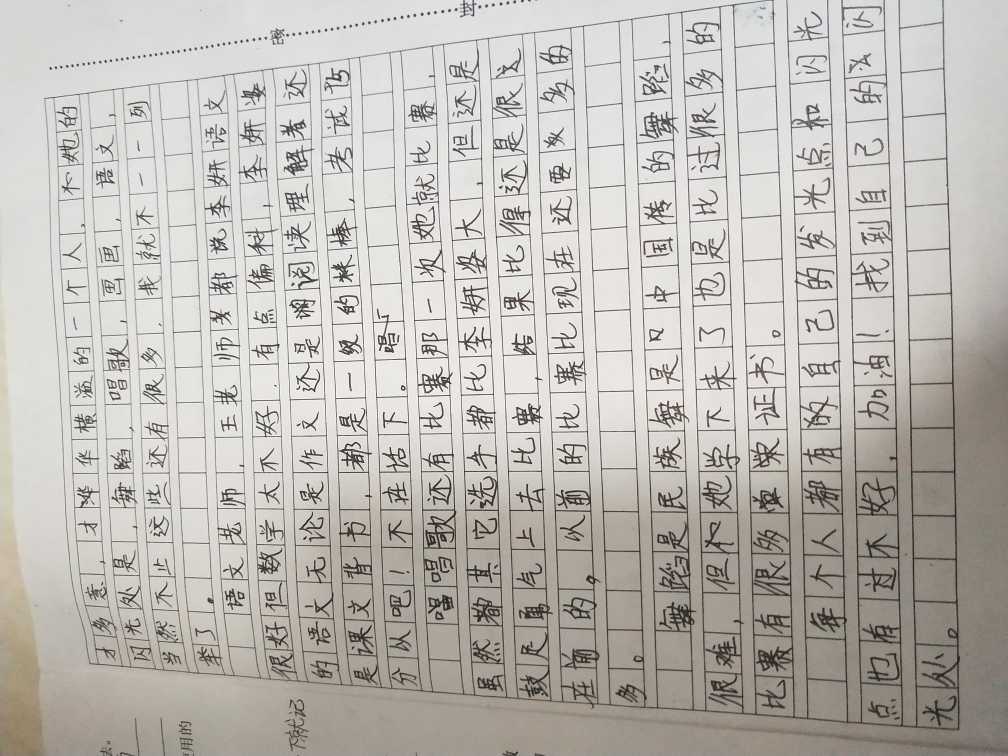 才多意,才华华横溢的一个人,不她的
闪光处是,舞蹈,唱歌,画画,语文,
当然不止这些还有很多.我就不一一列
举了。
语文老师.王老师老都说李妍语文
很好但数学太不好.有点偏科,李妍姿
的语文无论是作文还是阅读理解者还
是课文背书,都是一级的棒,考试75
分以吧!不在话下。
唱唱歌还有比赛那一次她就比赛,
虽然都其它选手都比李妍姿大,但还是
鼓足勇气上去比赛,结果比得还是很这
在前的。以前的比赛比现在还要多的
多。
舞蹈是民族舞是中国传的舞蹈,
很难,但不她学下来了也是比过很多的
比赛有很多荣证书。
每个人都有的自己的发光点和闪光
点也有过不好,加油!找到自己的闪
光处。
密
封
下就记
用的
法。